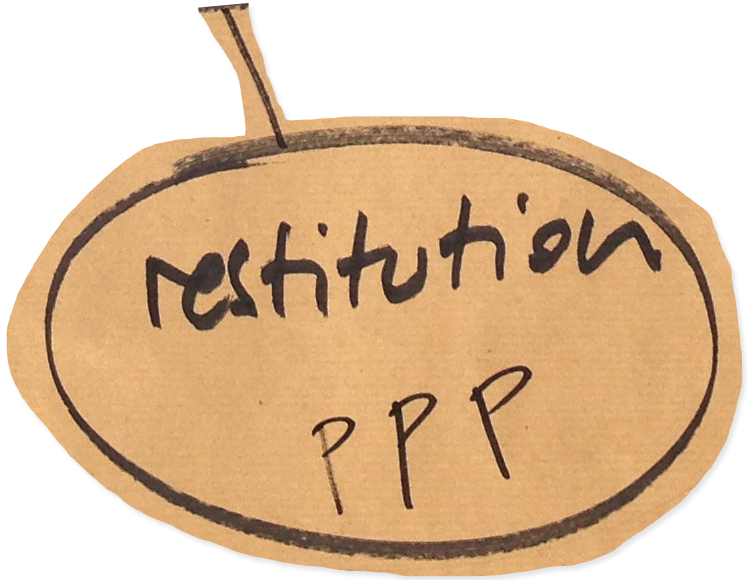 restitution
PPP